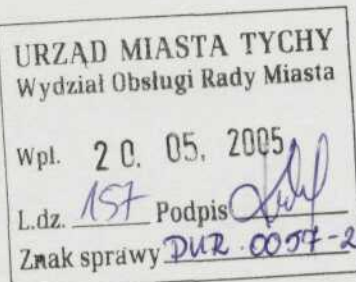 URZĄD MIASTA TYCHY
Wydział Obsługi Rady Miasta
Wpł. 20. 05. 2005
L.dz. 157 Podpis
Znak sprawy DUR.0057-2